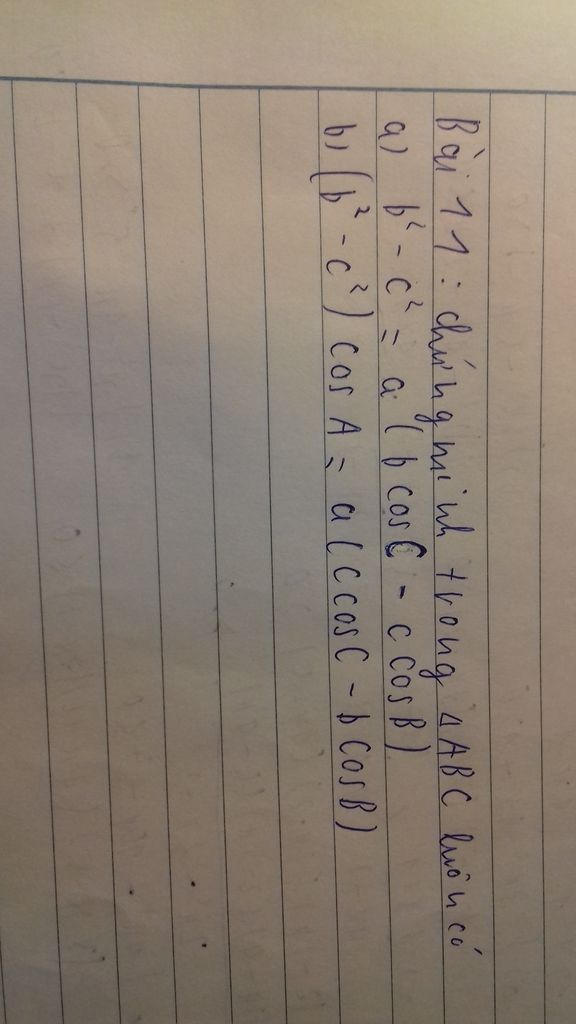 Bài 11: chứng minh trong ΔABC luôn có
a) b² - c² = a (b cosC - c cosB)
b) (b² - c²) cos A = a (c cosC - b cosB)